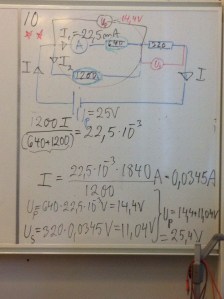 10
**
U₁ = 14,4V
I₁ = 22,5mA
A 640 320
I I₂ U₂ I
1200
U = 25V
1200 I
(640+1200) = 22,5·10⁻³
I = 22,5·10⁻³·1840 A = 0,0345A
1200
Up = 640·22,5·10⁻³V = 14,4V
Us = 320·0,0345V = 11,04V
Up = 14,4+11,04V
= 25,4V